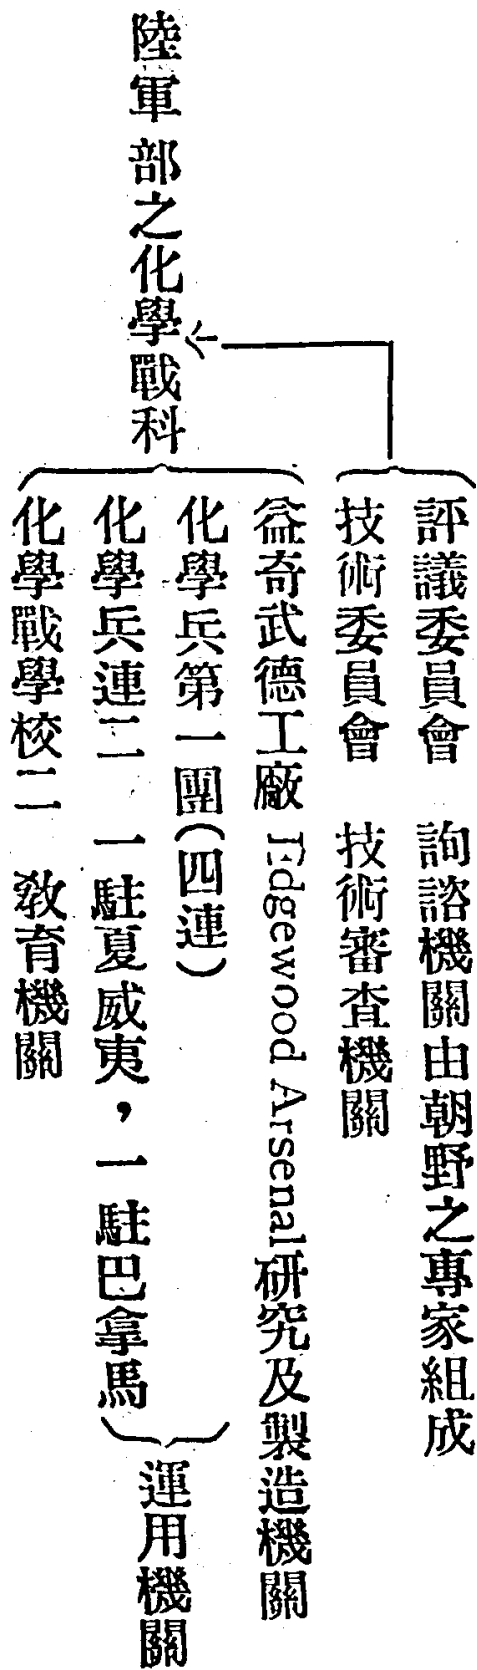 評議委員會 詢諮機關由朝野之專家組成
技術委員會 技術審查機關
陸軍部之化學戰科
益奇武德工廠 Edgewood Arsenal研究及製造機關
化學兵第一團(四連)
化學兵連二 一駐夏威夷，一駐巴拿馬
運用機關
化學戰學校二 敎育機關